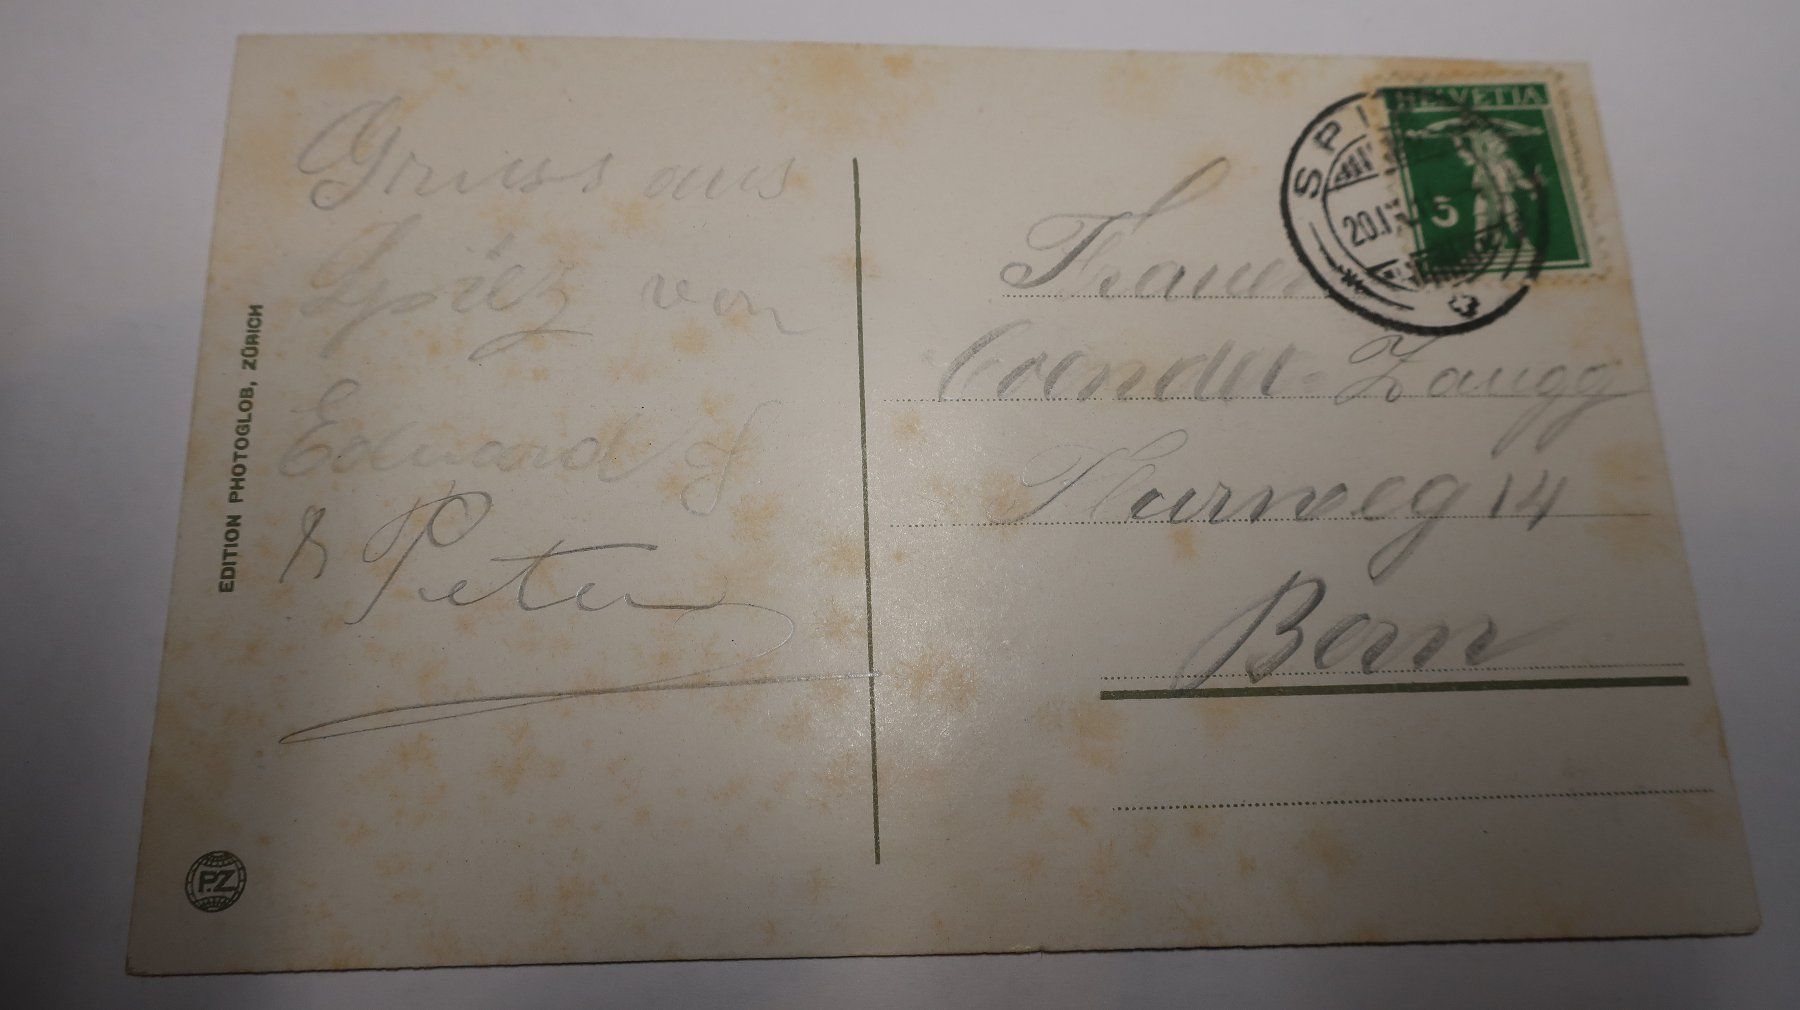 Gruss aus
Spiez von
Eduard
& Peter
EDITION PHOTOGLOB, ZÜRICH
P.Z
HELVETIA
5
SPI
20.I
Frauen
Zaugg
Flurweg 14
Bern